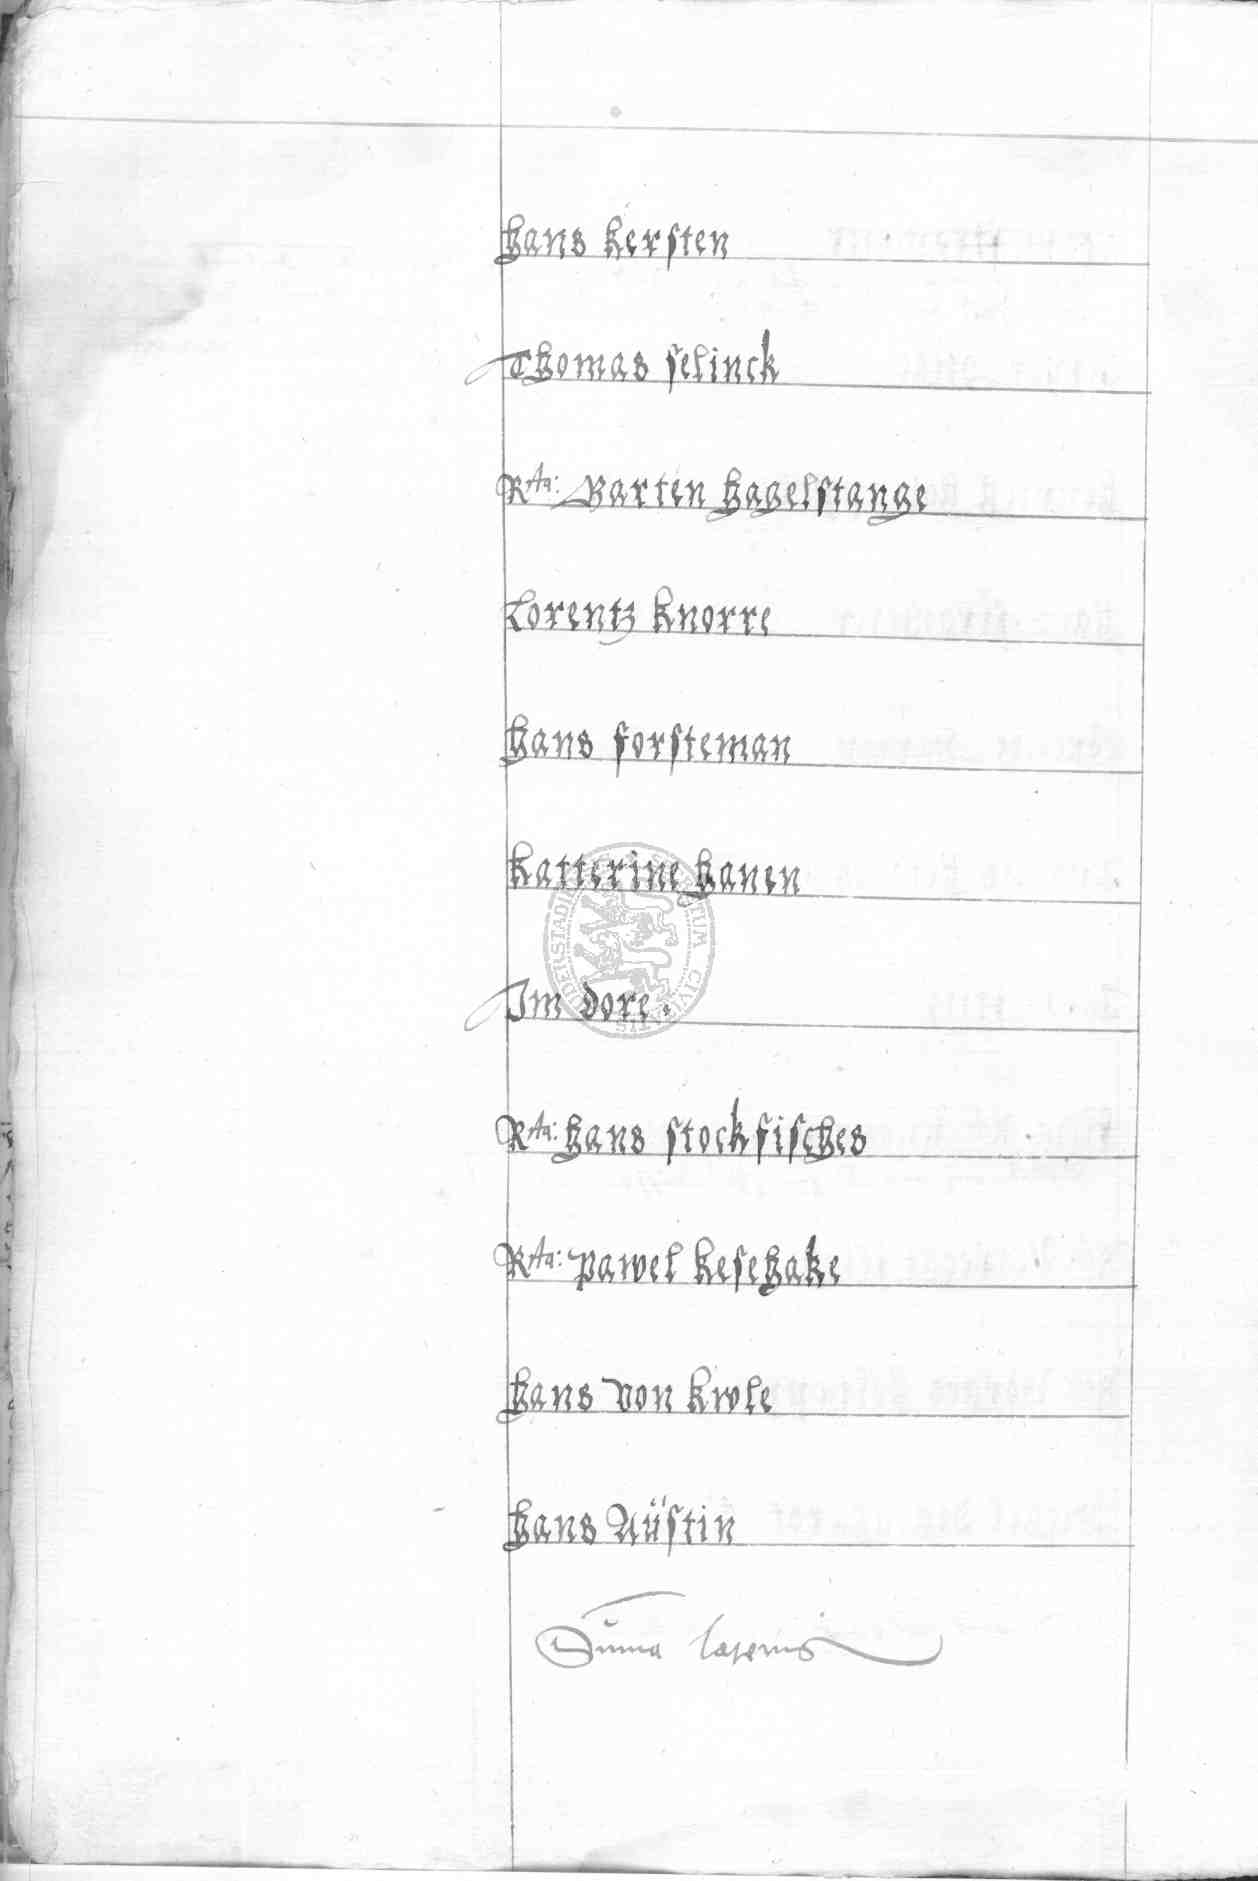 Hans Kersten
Thomas selinck
Rta: Barten Hagelstange
Lorentz Knorre
Hans forsteman
Katterine Hanen
Im dore.
Rta: Hans stockfisches
Rta: pawel kesehake
Hans von kwle
Hans Aüstin
Suma lateris